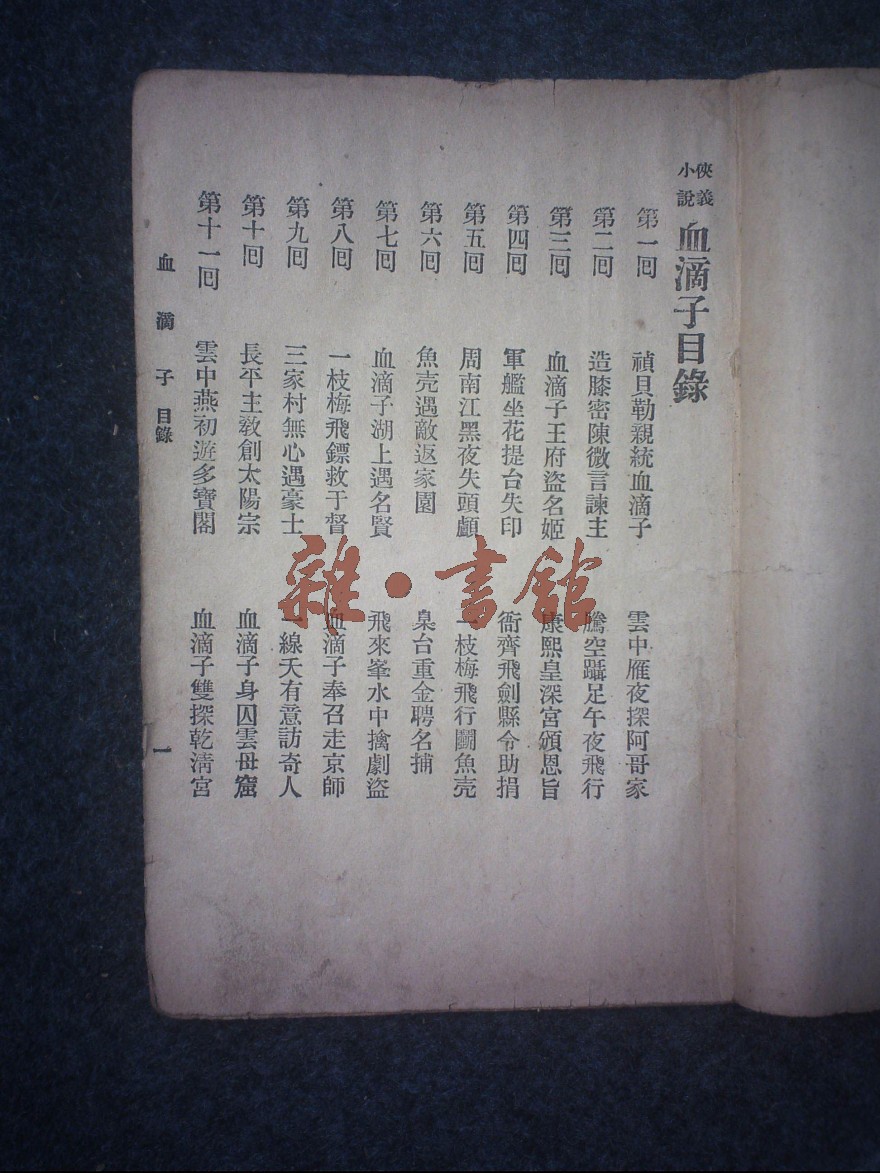 俠義小說 血滴子目錄
第一回 禎貝勒親統血滴子 雲中雁夜探阿哥家
第二回 造膝密陳微言諫主 騰空躡足午夜飛行
第三回 血滴子王府盜名姬 康熙皇深宮頒恩旨
第四回 軍艦坐花提台失印 衙齊飛劍縣令助捐
第五回 周南江黑夜失頭顱 一枝梅飛行鬭魚壳
第六回 魚壳遇敵返家園 臬台重金聘名捕
第七回 血滴子湖上遇名賢 飛來峯水中擒劇盜
第八回 一枝梅飛鏢救于督 血滴子奉召走京師
第九回 三家村無心遇豪士 一線天有意訪奇人
第十回 長平主敎創太陽宗 血滴子身囚雲母窟
第十一回 雲中燕初遊多寶閣 血滴子雙探乾淸宮
血滴子 目錄 一
雜·書館